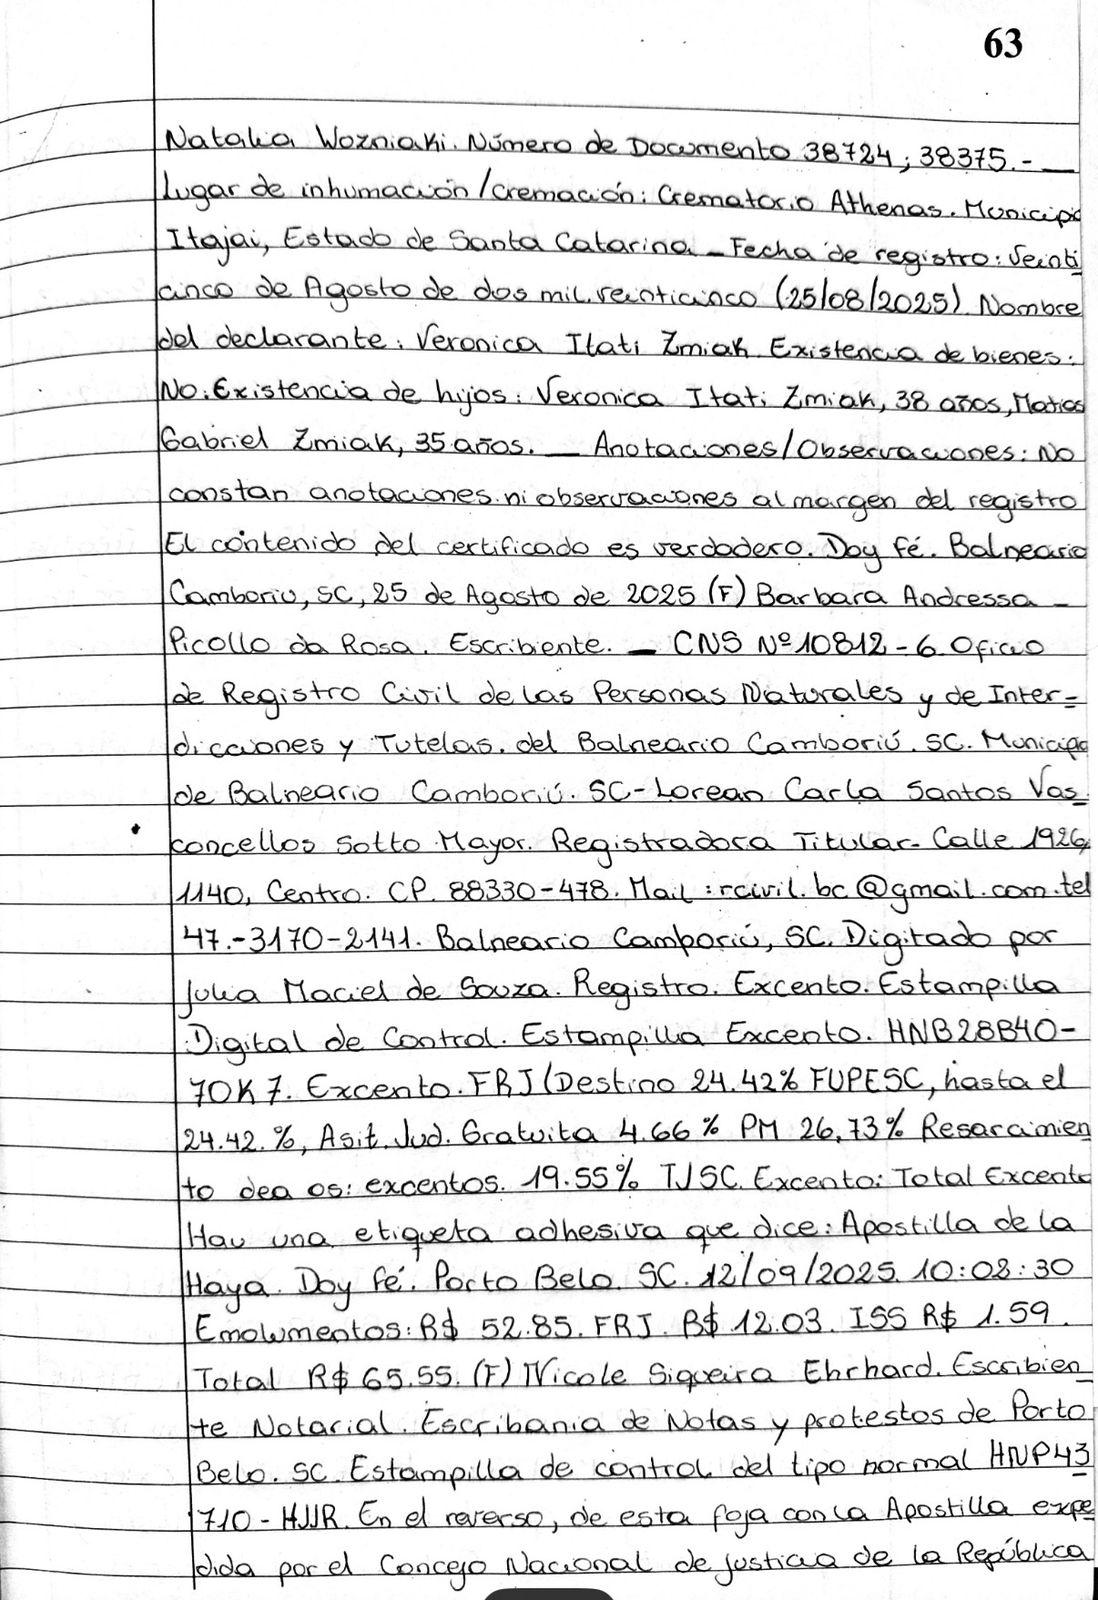 63
Natalia Wozniaki. Número de Documento 38724; 38375.- __
Lugar de inhumación/cremación: Crematorio Athenas. Municipio
Itajai, Estado de Santa Catarina - Fecha de registro: Veinti
cinco de Agosto de dos mil veinticinco (25/08/2025) Nombre
del declarante: Veronica Itati Zmiak Existencia de bienes:
No. Existencia de hijos: Veronica Itati Zmiak, 38 años, Matias
Gabriel Zmiak, 35 años. __ Anotaciones/Observaciones: No
constan anotaciones ni observaciones al margen del registro
El contenido del certificado es verdadero. Doy fé. Balneario
Camboriu, SC, 25 de Agosto de 2025 (F) Barbara Andressa -
Picollo da Rosa. Escribiente. - CNS Nº 10812-6 Oficio
de Registro Civil de las Personas Naturales y de Inter=
dicciones y Tutelas. del Balneario Camboriú. SC. Municipio
de Balneario Camboriú. SC- Lorean Carla Santos Vas
concellos Sotto Mayor. Registradora Titular- Calle 1926,
1140, Centro. CP. 88330-478. Mail: rcivil.bc@gmail.com.tel
47.-3170-2141. Balneario Camboriú, SC. Digitado por
Julia Maciel de Souza. Registro. Excento. Estampilla
Digital de Control. Estampilla Excento. HNB28B40-
70K7. Excento. FRJ (Destino 24.42% FUPESC, hasta el
24.42.%, Asit. Jud. Gratuita 4.66% PM 26,73% Resarcimien
to dea os: excentos. 19.55% TJSC. Excento: Total Excento
Hay una etiqueta adhesiva que dice: Apostilla de la
Haya. Doy fé. Porto Belo. SC. 12/09/2025. 10:08:30
Emolumentos: R$ 52.85. FRJ. R$ 12.03. ISS R$ 1.59.
Total R$ 65.55. (F) Nicole Siqueira Ehrhard. Escribien
te Notarial. Escribania de Notas y protestos de Porto
Belo. SC. Estampilla de control del tipo normal HNP43
710-HJJR. En el reverso, de esta foja con la Apostilla expe
dida por el Concejo Nacional de justicia de la República